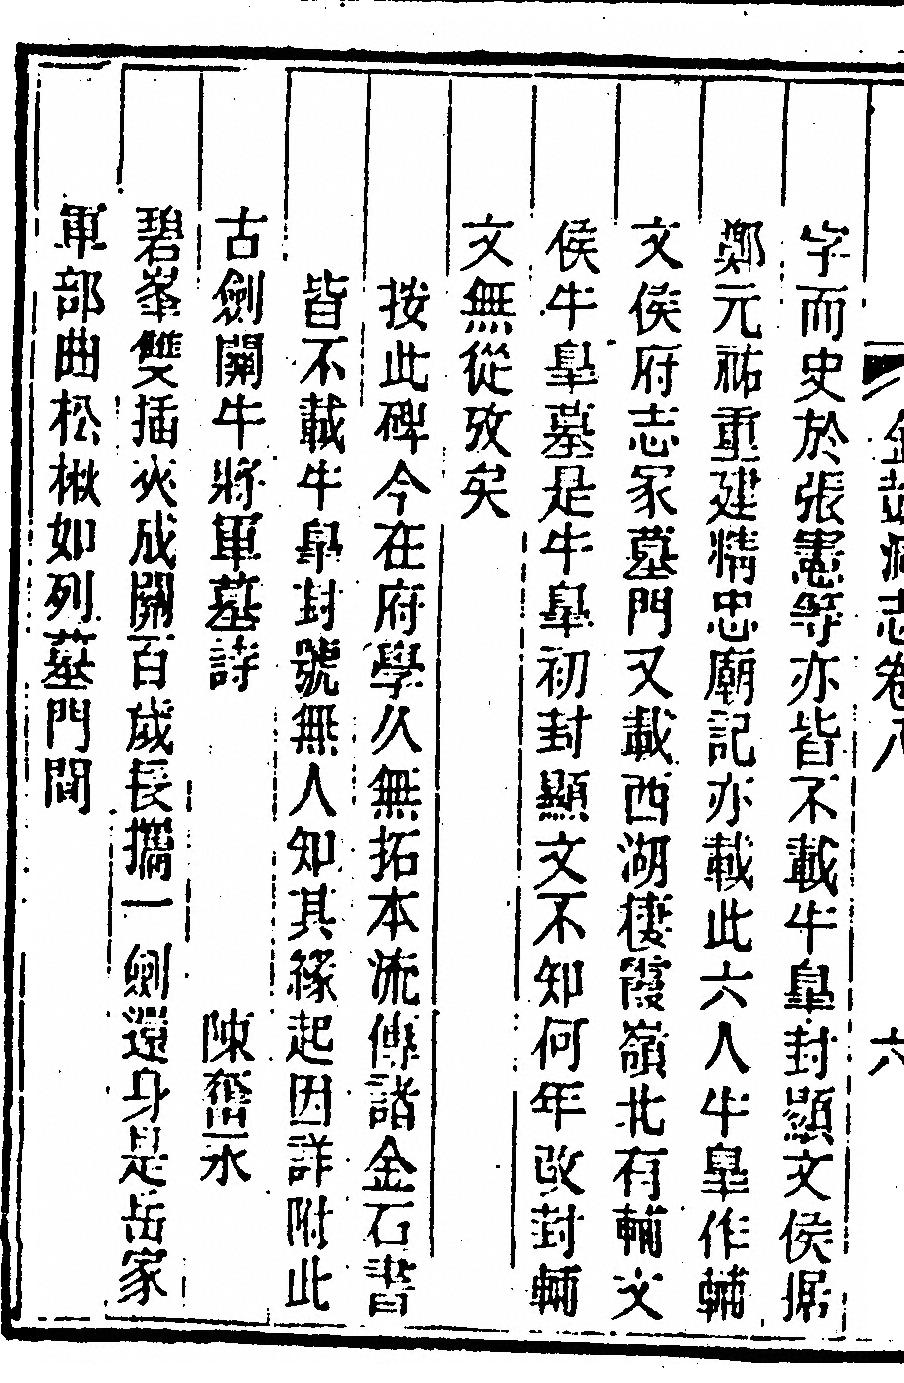 金鼓洞志卷八　六
字而史於張憲等亦皆不載牛皐封顯文侯據
鄭元祐重建精忠廟記亦載此六人牛皐作輔
文侯府志冢墓門又載西湖棲霞嶺北有輔文
侯牛皐墓是牛皐初封顯文不知何年改封輔
文無從攷矣
按此碑今在府學久無拓本流傳諸金石書
皆不載牛皐封號無人知其緣起因詳附此
古劍關牛將軍墓詩　陳奮永
碧峯雙插夾成關百歲長攜一劍還身是岳家
軍部曲松楸如列墓門間